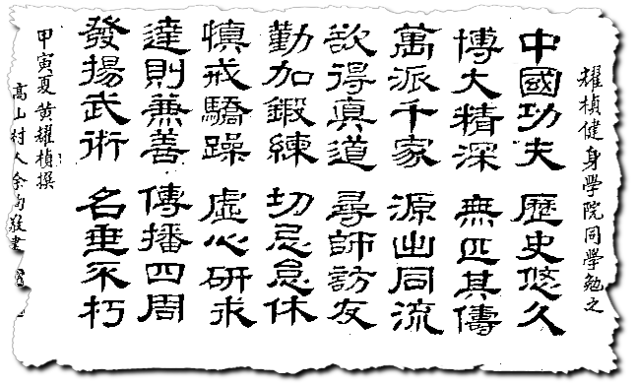 耀楨健身學院同學勉之
中國功夫 歷史悠久
博大精深 無匹其儔
萬派千家 源出同流
欲得真道 尋師訪友
勤加鍛練 切忌怠休
慎戒驕躁 虛心研求
達則兼善 傳播四周
發揚武術 名垂不朽
甲寅夏黃耀楨撰
高山村人余